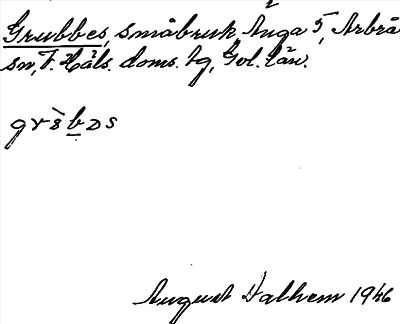 Grubbes, småbruk, Änga 5, Arbrå
sn, V. Häls. doms. tg, Gvl. län.
August Dalhem 1946